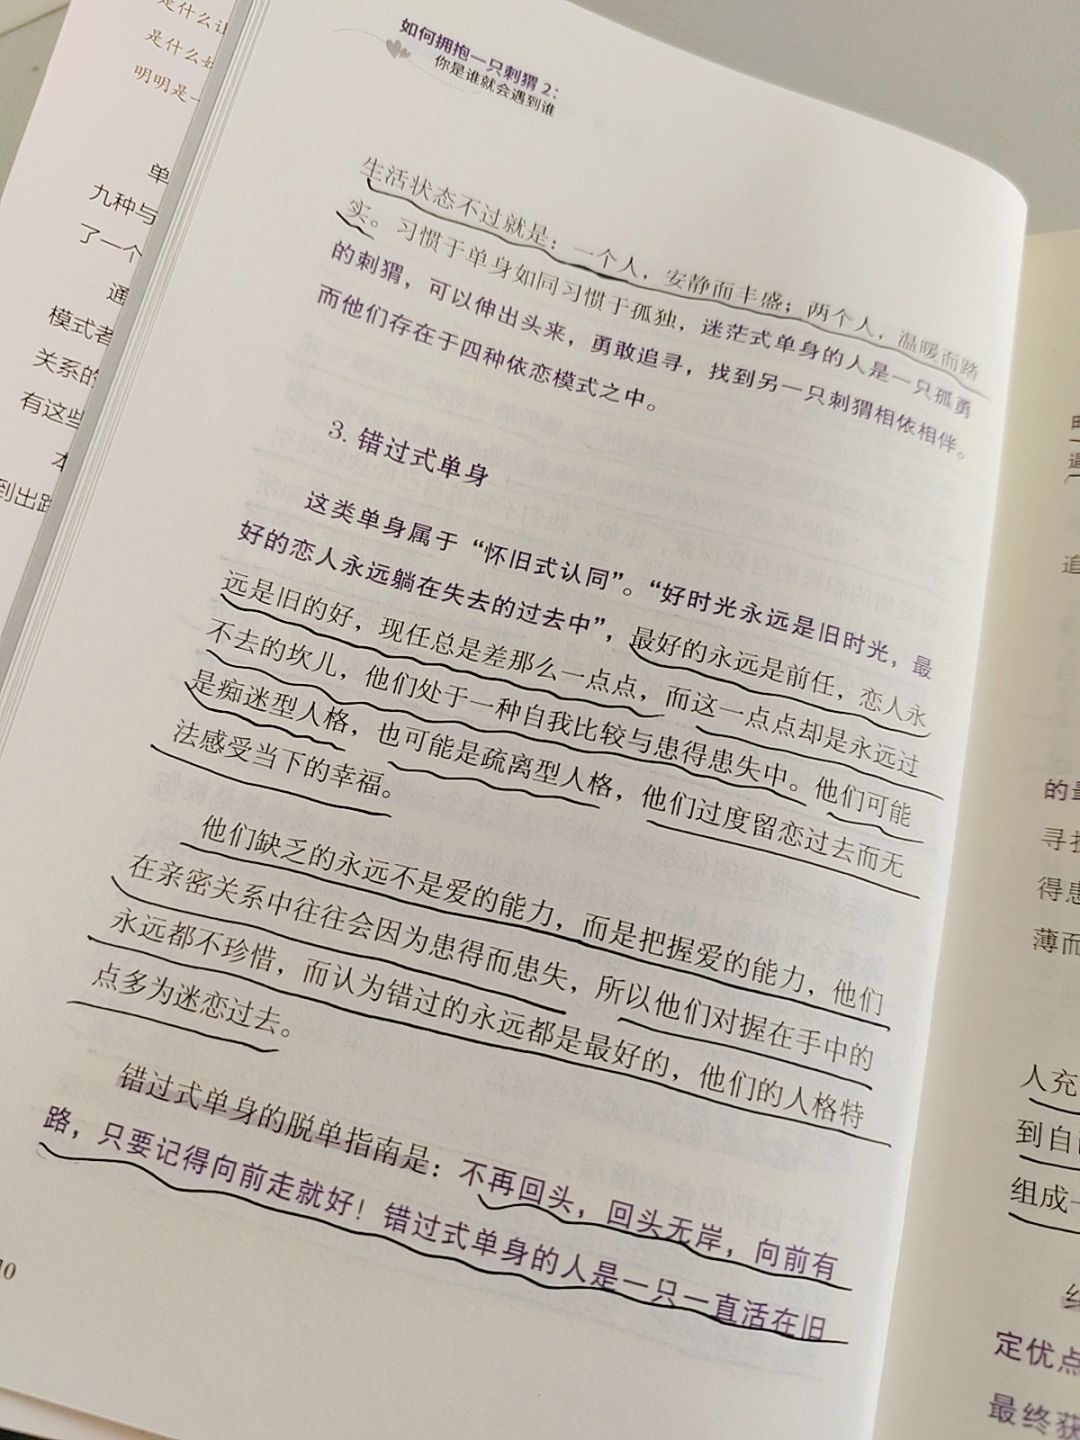 是什么让
是什么如
明明是一
单
九种与
了一个
通
模式者
关系的
有这些
本
到出路
如何拥抱一只刺猬 2：
你是谁就会遇到谁
生活状态不过就是：一个人，安静而丰盛；两个人，温暖而踏
实。习惯于单身如同习惯于孤独，迷茫式单身的人是一只孤勇
的刺猬，可以伸出头来，勇敢追寻，找到另一只刺猬相依相伴。
而他们存在于四种依恋模式之中。
3. 错过式单身
这类单身属于“怀旧式认同”。“好时光永远是旧时光，最
好的恋人永远躺在失去的过去中”，最好的永远是前任，恋人永
远是旧的好，现任总是差那么一点点，而这一点点却是永远过
不去的坎儿，他们处于一种自我比较与患得患失中。他们可能
是痴迷型人格，也可能是疏离型人格，他们过度留恋过去而无
法感受当下的幸福。
他们缺乏的永远不是爱的能力，而是把握爱的能力，他们
在亲密关系中往往会因为患得而患失，所以他们对握在手中的
永远都不珍惜，而认为错过的永远都是最好的，他们的人格特
点多为迷恋过去。
错过式单身的脱单指南是：不再回头，回头无岸，向前有
路，只要记得向前走就好！错过式单身的人是一只一直活在旧
10
追
的量
寻找
得患
薄而
人充
到自己
组成一
定优点
最终获